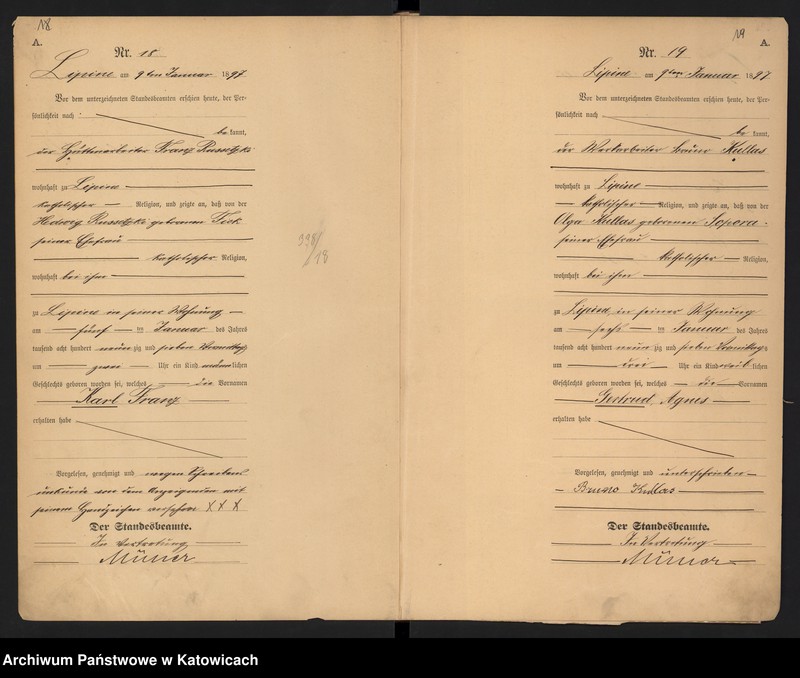 18
A.
Nr. 18
Lipine am 9ten Januar 1897
Vor dem unterzeichneten Standesbeamten erschien heute, der Per-
sönlichkeit nach
be kannt,
der Hüttenarbeiter Franz
wohnhaft zu Lipine
katholischer Religion, und zeigte an, daß von der
Hedwig geborenen
seiner Ehefrau
katholischer Religion,
wohnhaft bei ihm
zu Lipine in seiner Wohnung
am fünf ten Januar des Jahres
tausend acht hundert neun zig und sieben Vormittags
um zwei Uhr ein Kind männ lichen
Geschlechts geboren worden sei, welches die Vornamen
Karl Franz
erhalten habe
Vorgelesen, genehmigt und wegen Schreibens
unkunde von dem Anzeigenden mit
seinem Handzeichen versehen X X X
Der Standesbeamte.
In Vertretung
398/18
19
A.
Nr. 19
Lipine am 9ten Januar 1897
Vor dem unterzeichneten Standesbeamten erschien heute, der Per-
sönlichkeit nach
be kannt,
der Werkarbeiter Bruno Kullas
wohnhaft zu Lipine
katholischer Religion, und zeigte an, daß von der
Olga Kullas geborenen Sopora
seiner Ehefrau
katholischer Religion,
wohnhaft bei ihm
zu Lipine in seiner Wohnung
am sechs ten Januar des Jahres
tausend acht hundert neun zig und sieben Vormittags
um drei Uhr ein Kind weib lichen
Geschlechts geboren worden sei, welches die Vornamen
Gertrud Agnes
erhalten habe
Vorgelesen, genehmigt und unterschrieben
Bruno Kullas
Der Standesbeamte.
In Vertretung
Archiwum Państwowe w Katowicach